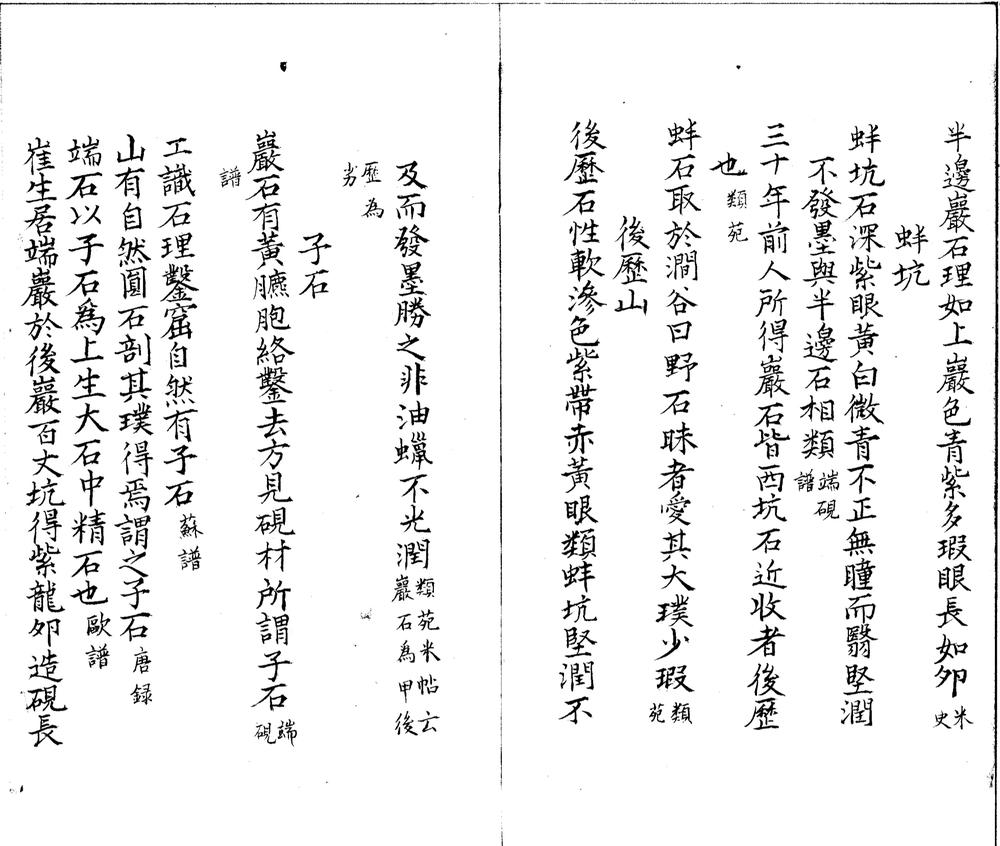 半邊巖石理如上巖色青紫多瑕眼長如夘米史
蚌坑
蚌坑石深紫眼黃白微青不正無瞳而翳堅潤
不發墨與半邊石相類端硯譜
三十年前人所得巖石皆西坑石近收者後歷
也類苑
蚌石取於澗谷曰野石昧者愛其大璞少瑕類苑
後歷山
後歷石性軟滲色紫帶赤黃眼類蚌坑堅潤不
及而發墨勝之非油蠟不光潤類苑米帖云巖石為甲後
歷為劣
子石
巖石有黃臕胞絡鑿去方見硯材所謂子石端硯
譜
工識石理鑿窟自然有子石蘇譜
山有自然圓石剖其璞得焉謂之子石唐録
端石以子石為上生大石中精石也歐譜
崔生居端巖於後巖百丈坑得紫龍夘造硯長